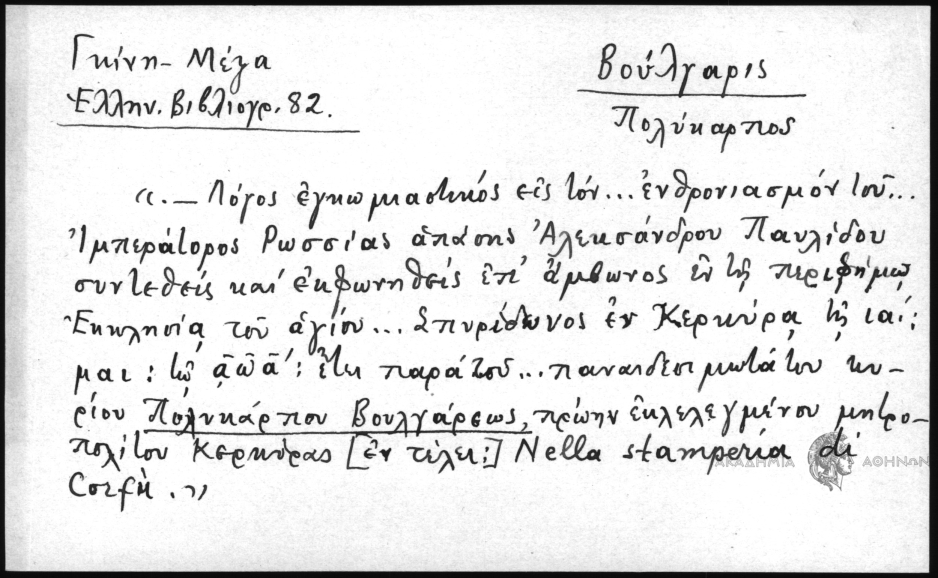 Γκίνη - Μέγα
Ἑλλην. Βιβλιογρ. 82.
Βούλγαρις
Πολύκαρπος
«.— Λόγος ἐγκωμιαστικός εἰς τόν... ἐνθρονιασμόν τοῦ...
Ἰμπεράτορος Ρωσσίας ἁπάσης Ἀλεκσάνδρου Παυλίδου
συντεθείς καί ἐκφωνηθείς ἐπ' ἄμβωνος ἐν τῇ περιφήμῳ
Ἐκκλησίᾳ τοῦ ἁγίου... Σπυρίδωνος ἐν Κερκύρᾳ τῇ ιαί:
μαι: τῷ ᾳωα': ἔτει παρά τοῦ... παναιδεσιμωτάτου κυ-
ρίου Πολυκάρπου Βουλγάρεως, πρώην ἐκλελεγμένου μητρο-
πολίτου Κερκύρας [ἐν τέλει:] Nella stamperia di
Corfù.»
ΑΚΑΔΗΜΙΑ ΑΘΗΝΩΝ